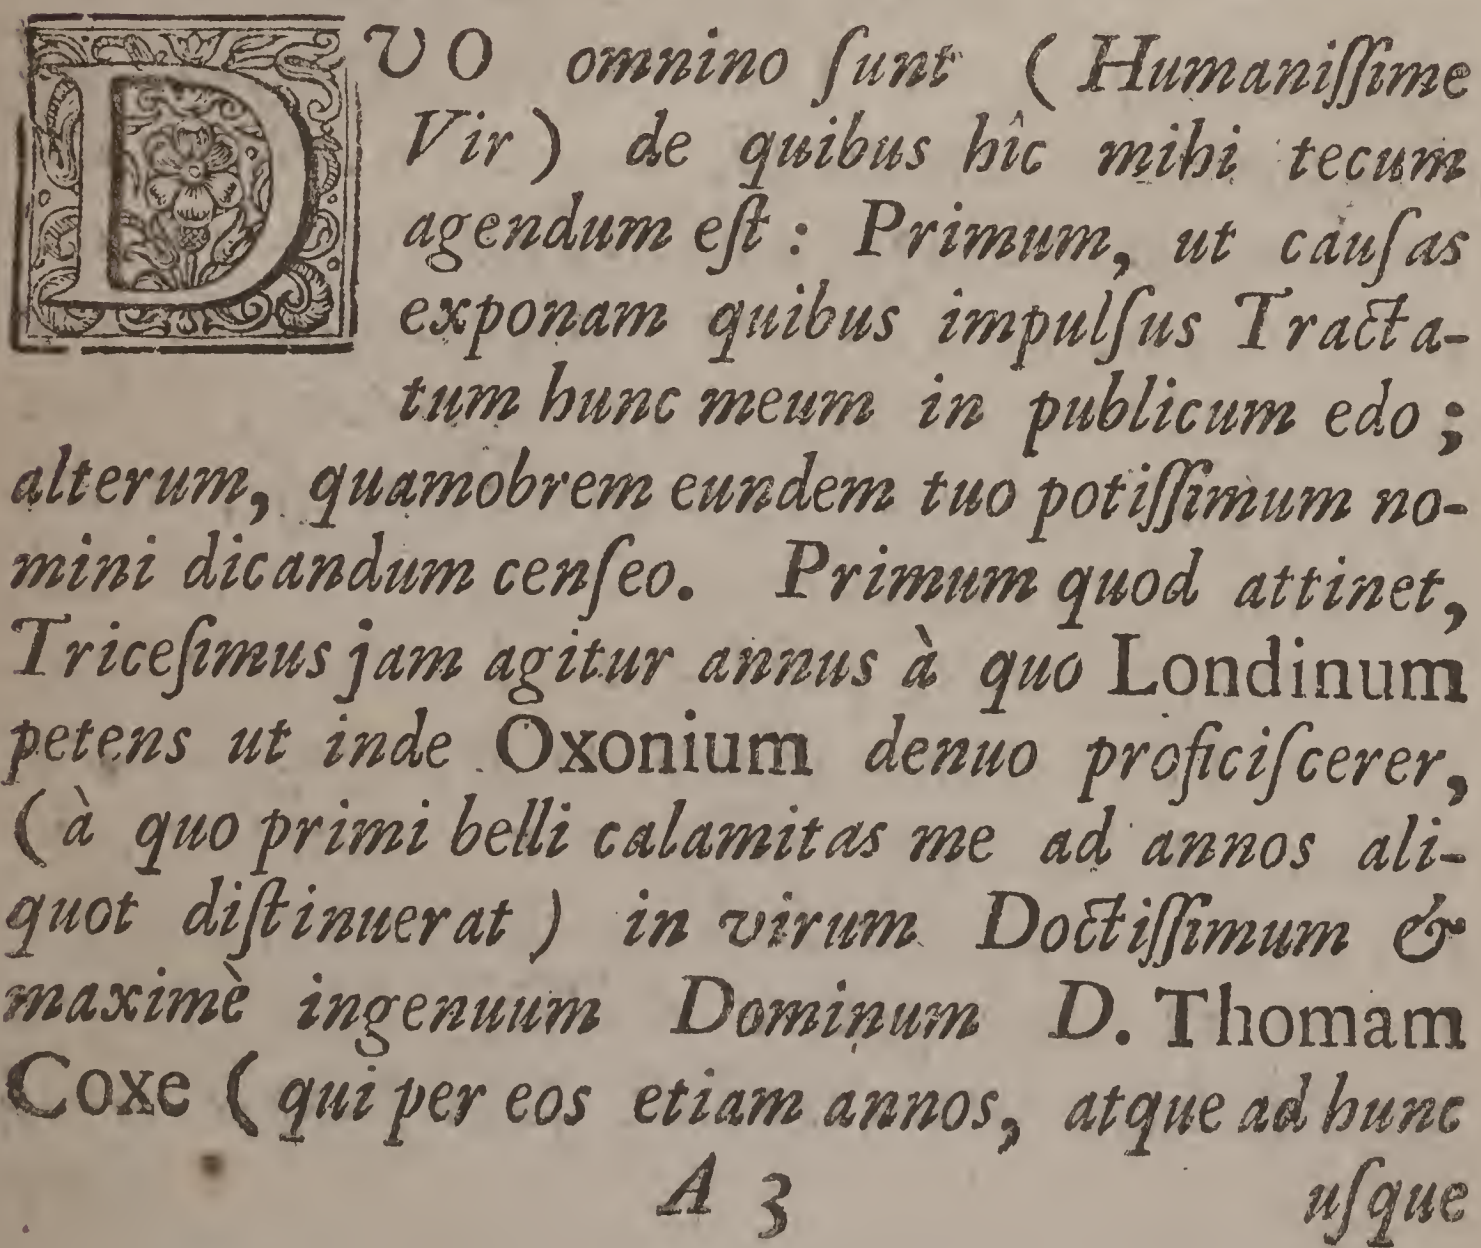 DVO omnino ſunt (Humaniſſime
Vir) de quibus hîc mihi tecum
agendum eſt: Primum, ut cauſas
exponam quibus impulſus Tracta-
tum hunc meum in publicum edo;
alterum, quamobrem eundem tuo potiſſimum no-
mini dicandum cenſeo. Primum quod attinet,
Triceſimus jam agitur annus à quo Londinum
petens ut inde Oxonium denuo proficiſcerer,
(à quo primi belli calamitas me ad annos ali-
quot diſtinuerat) in virum Doctiſſimum &
maximè ingenuum Dominum D. Thomam
Coxe (qui per eos etiam annos, atque ad hunc
A 3 uſque